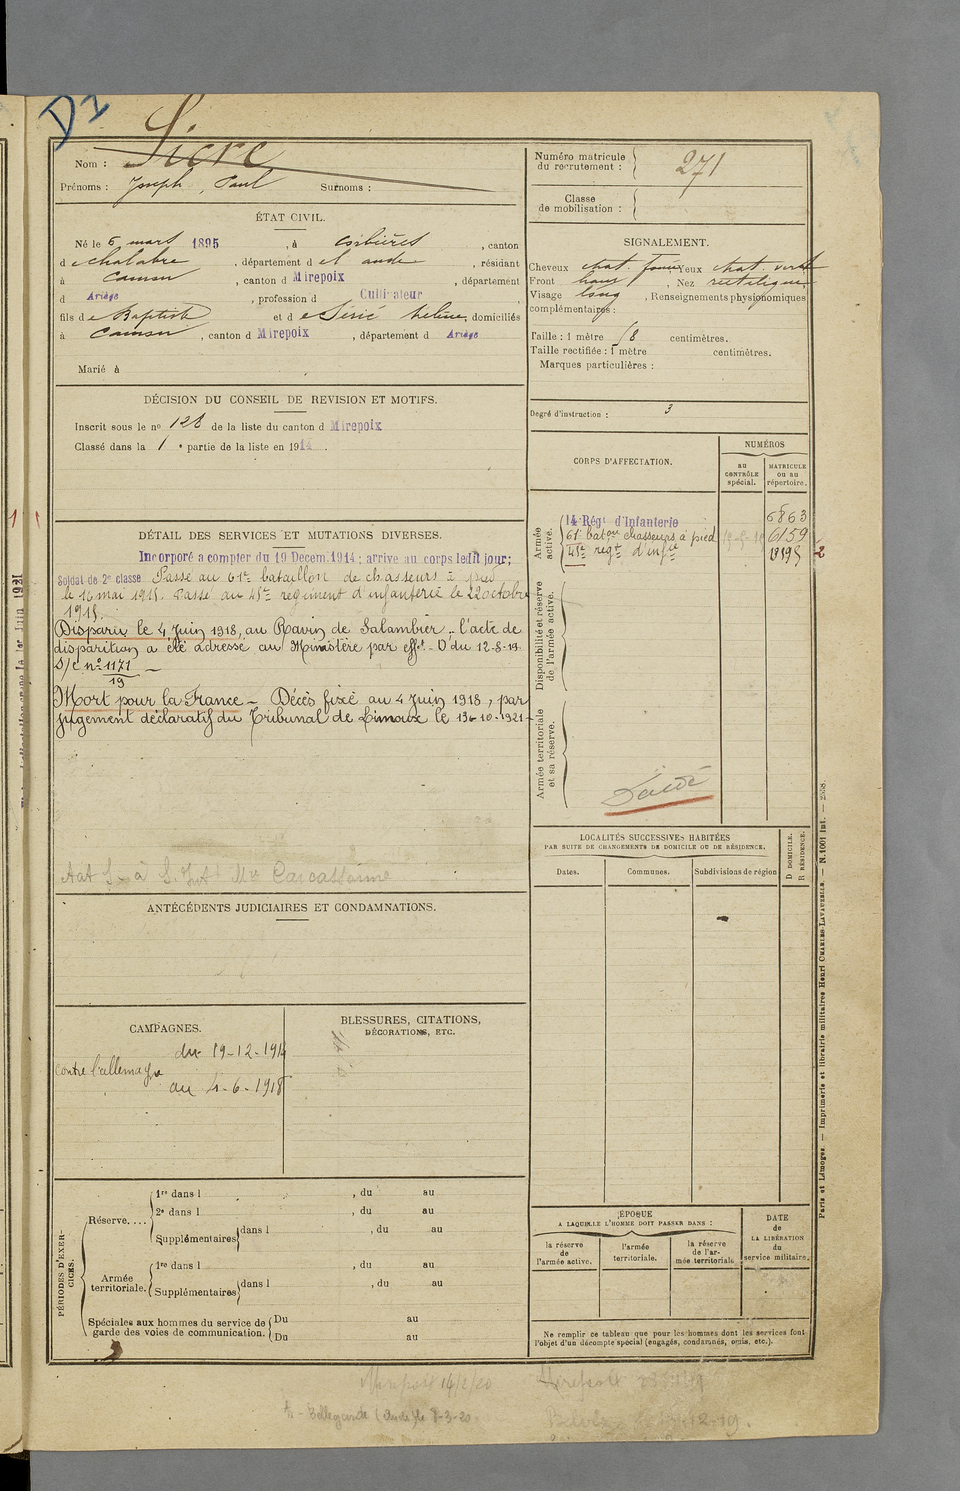 D2
Nom : Sicre
Prénoms : Joseph, Paul Surnoms :
ÉTAT CIVIL.
Né le 6 mars 1895, à Corbières, canton
de Chalabre, département de l'Aude, résidant
à Camon, canton d Mirepoix, département
d Ariège, profession d Cultivateur
fils de Baptiste et de Hélène, domiciliés
à Camon, canton d Mirepoix, département d Ariège
Marié à
DÉCISION DU CONSEIL DE REVISION ET MOTIFS.
Inscrit sous le n° 128 de la liste du canton d Mirepoix
Classé dans la 1e partie de la liste en 1914.
DÉTAIL DES SERVICES ET MUTATIONS DIVERSES.
Incorporé a compter du 19 Decem. 1914 ; arrivé au corps ledit jour;
Soldat de 2e classe Passé au 61e bataillon de chasseurs à pied
le 16 mai 1915. Passé au 45e régiment d'infanterie le 22 octobre
1915.
Disparu le 4 Juin 1918, au Ravin de Salambier. l'acte de
disparition a été adressé au Ministère par off. O du 12-8-19
S/C n° 1171
19
Mort pour la France _ Décès fixé au 4 Juin 1918, par
jugement déclaratif du Tribunal de Limoux le 13-10-1921
Carcassonne
ANTÉCÉDENTS JUDICIAIRES ET CONDAMNATIONS.
CAMPAGNES.
contre l'allemagne du 19-12-1914
au 4-6-1918
BLESSURES, CITATIONS,
DÉCORATIONS, ETC.
PÉRIODES D'EXER-
CICES.
Réserve.... 1re dans l , du au
2e dans l , du au
Supplémentaires dans l , du au
Armée territoriale. 1re dans l , du au
Supplémentaires dans l , du au
Spéciales aux hommes du service de Du au
garde des voies de communication. Du au
Numéro matricule
du recrutement : 271
Classe
de mobilisation :
SIGNALEMENT.
Cheveux chat. foncé Yeux chat. vert
Front haut, Nez rectiligne
Visage long, Renseignements physionomiques
complémentaires :
Taille : 1 mètre 58 centimètres.
Taille rectifiée : 1 mètre centimètres.
Marques particulières :
Degré d'instruction : 3
CORPS D'AFFECTATION.
NUMÉROS
au
CONTRÔLE
spécial.
MATRICULE
ou au
répertoire.
Armée
active.
14 Régt d'Infanterie 6863
61e baton chasseurs à pied 6159
45e régt d'infie
Disponibilité et réserve
de l'armée active.
Armée territoriale
et sa réserve.
LOCALITÉS SUCCESSIVES HABITÉES
PAR SUITE DE CHANGEMENTS DE DOMICILE OU DE RÉSIDENCE.
Dates. Communes. Subdivisions de région
D DOMICILE.
R RÉSIDENCE.
ÉPOQUE
A LAQUELLE L'HOMME DOIT PASSER DANS :
la réserve
de
l'armée active.
l'armée
territoriale.
la réserve
de l'ar-
mée territoriale
DATE
de
LA LIBÉRATION
du
service militaire.
Ne remplir ce tableau que pour les hommes dont les services font
l'objet d'un décompte spécial (engagés, condamnés, omis, etc.).
Paris et Limoges. — Imprimerie et librairie militaires Henri CHARLES-LAVAUZELLE. — N. 1001 Int.
Mirepoix 14/2/20
Bellegarde (Aude) le 8-3-20